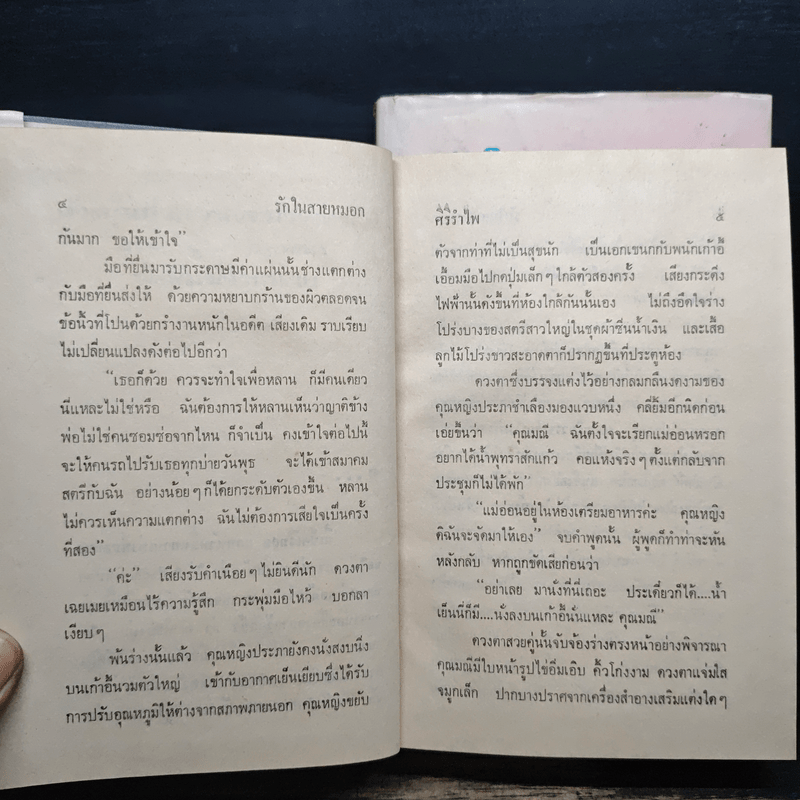 ๔
รักในสายหมอก
กันมาก ขอให้เข้าใจ”
มือที่ยื่นมารับกระดาษมีค่าแผ่นนั้นช่างแตกต่าง
กับมือที่ยื่นส่งให้ ด้วยความหยาบกร้านของผิวตลอดจน
ข้อนิ้วที่โปนด้วยกรำงานหนักในอดีต เสียงเดิม ราบเรียบ
ไม่เปลี่ยนแปลงดังต่อไปอีกว่า
“เธอก็ด้วย ควรจะทำใจเพื่อหลาน ก็มีคนเดียว
นี่แหละไม่ใช่หรือ ฉันต้องการให้หลานเห็นว่าญาติข้าง
พ่อไม่ใช่คนซอมซ่อจากไหน ก็จำเป็น คงเข้าใจต่อไปนี้
จะให้คนรถไปรับเธอทุกบ่ายวันพุธ จะได้เข้าสมาคม
สตรีกับฉัน อย่างน้อยๆก็ได้ยกระดับตัวเองขึ้น หลาน
ไม่ควรเห็นความแตกต่าง ฉันไม่ต้องการเสียใจเป็นครั้ง
ที่สอง”
“ค่ะ” เสียงรับคำเนือยๆไม่ยินดีนัก ดวงตา
เฉยเมยเหมือนไร้ความรู้สึก กระพุ่มมือไหว้ บอกลา
เงียบๆ
พ้นร่างนั้นแล้ว คุณหญิงประภายังคงนั่งสงบนิ่ง
บนเก้าอี้นวมตัวใหญ่ เข้ากับอากาศเย็นเยียบซึ่งได้รับ
การปรับอุณหภูมิให้ต่างจากสภาพภายนอก คุณหญิงขยับ
ศิริรำไพ
๕
ตัวจากท่าที่ไม่เป็นสุขนัก เป็นเอกเขนกกับพนักเก้าอี้
เอื้อมมือไปกดปุ่มเล็กๆ ใกล้ตัวสองครั้ง เสียงกระดิ่ง
ไฟฟ้านั้นดังขึ้นที่ห้องใกล้กันนั้นเอง ไม่ถึงอึดใจร่าง
โปร่งบางของสตรีสาวใหญ่ในชุดผ้าซิ่นน้ำเงิน และเสื้อ
ลูกไม้โปร่งขาวสะอาดตาก็ปรากฏขึ้นที่ประตูห้อง
ดวงตาซึ่งบรรจงแต่งไว้อย่างกลมกลืนงดงามของ
คุณหญิงประภาชำเลืองมองแวบหนึ่ง คลี่ยิ้มอีกนิดก่อน
เอ่ยขึ้นว่า “คุณมณี ฉันตั้งใจจะเรียกแม่อ่อนหรอก
อยากได้น้ำพุทราสักแก้ว คอแห้งจริงๆ ตั้งแต่กลับจาก
ประชุมก็ไม่ได้พัก”
“แม่อ่อนอยู่ในห้องเตรียมอาหารค่ะ คุณหญิง
ดิฉันจะจัดมาให้เอง” จบคำพูดนั้น ผู้พูดก็ทำท่าจะหัน
หลังกลับ หากถูกขัดเสียก่อนว่า
“อย่าเลย มานั่งที่นี่เถอะ ประเดี๋ยวก็ได้....น้ำ
เย็นนี่ก็มี....นั่งลงบนเก้าอี้นั่นแหละ คุณมณี”
ดวงตาสวยคู่นั้นจับจ้องร่างตรงหน้าอย่างพิจารณา
คุณมณีมีใบหน้ารูปไข่อิ่มเอิบ คิ้วโก่งงาม ดวงตาแจ่มใส
จมูกเล็ก ปากบางปราศจากเครื่องสำอางเสริมแต่งใดๆ